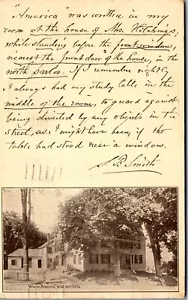 "America" was written in my
room at the house of Mrs. Hitchings,
while standing before the front window,
nearest the front door of the house, in the
north parlor. If I remember rightly,
I always had my study table in the
middle of the room, to guard against
being divided by any objects in
the street, as I might have been if the
table had stood near a window.
S. F. Smith